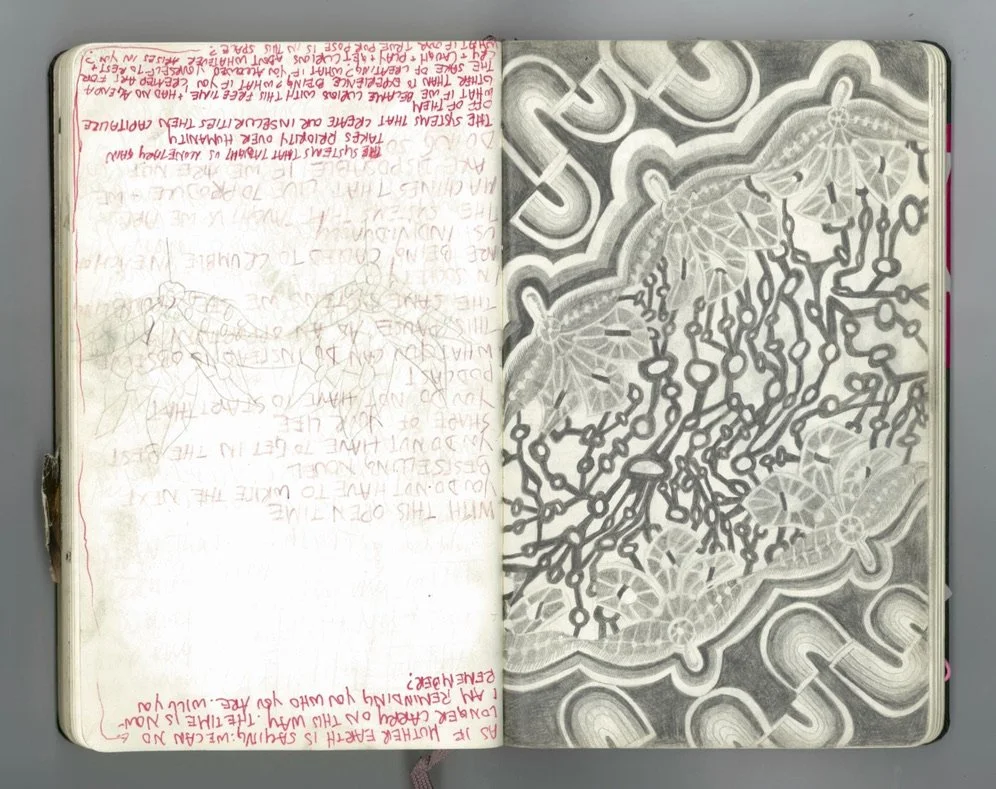 WITH THIS OPEN TIME
YOU DO NOT HAVE TO WRITE THE NEXT
BESTSELLING NOVEL
YOU DO NOT HAVE TO GET IN THE BEST
SHAPE OF YOUR LIFE
YOU DO NOT HAVE TO START THAT
PODCAST
WHAT YOU CAN DO INSTEAD IS OBSERVE
THIS PAUSE AS AN
THE SAME SYSTEMS WE SEE
IN SOCIETY
ARE BEING CALLED TO CRUMBLE IN
US INDIVIDUALLY
THE SYSTEMS THAT TAUGHT US WE ARE
MACHINES THAT LIVE TO PRODUCE + WE
ARE DISPOSABLE IF WE ARE NOT
DOING SO
THE SYSTEMS THAT TAUGHT US MONETARY GAIN
TAKES PRIORITY OVER HUMANITY
THE SYSTEMS THAT CREATE OUR INSECURITIES THEN CAPITALIZE
OFF OF THEM
WHAT IF WE BECAME CURIOUS WITH THIS FREE TIME + HAD NO AGENDA
OTHER THAN TO EXPERIENCE BEING? WHAT IF YOU CREATED ART FOR
THE SAKE OF CREATING? WHAT IF YOU ALLOWED YOURSELF TO REST +
CRY + LAUGH + PLAY + GET CURIOUS ABOUT WHATEVER ARISES IN YOU?
WHAT IF OUR TRUE PURPOSE IS IN THIS SPACE?
AS IF MOTHER EARTH IS SAYING: WE CAN NO
LONGER CARRY ON THIS WAY. THE TIME IS NOW-
I AM REMINDING YOU WHO YOU ARE. WILL YOU
REMEMBER?